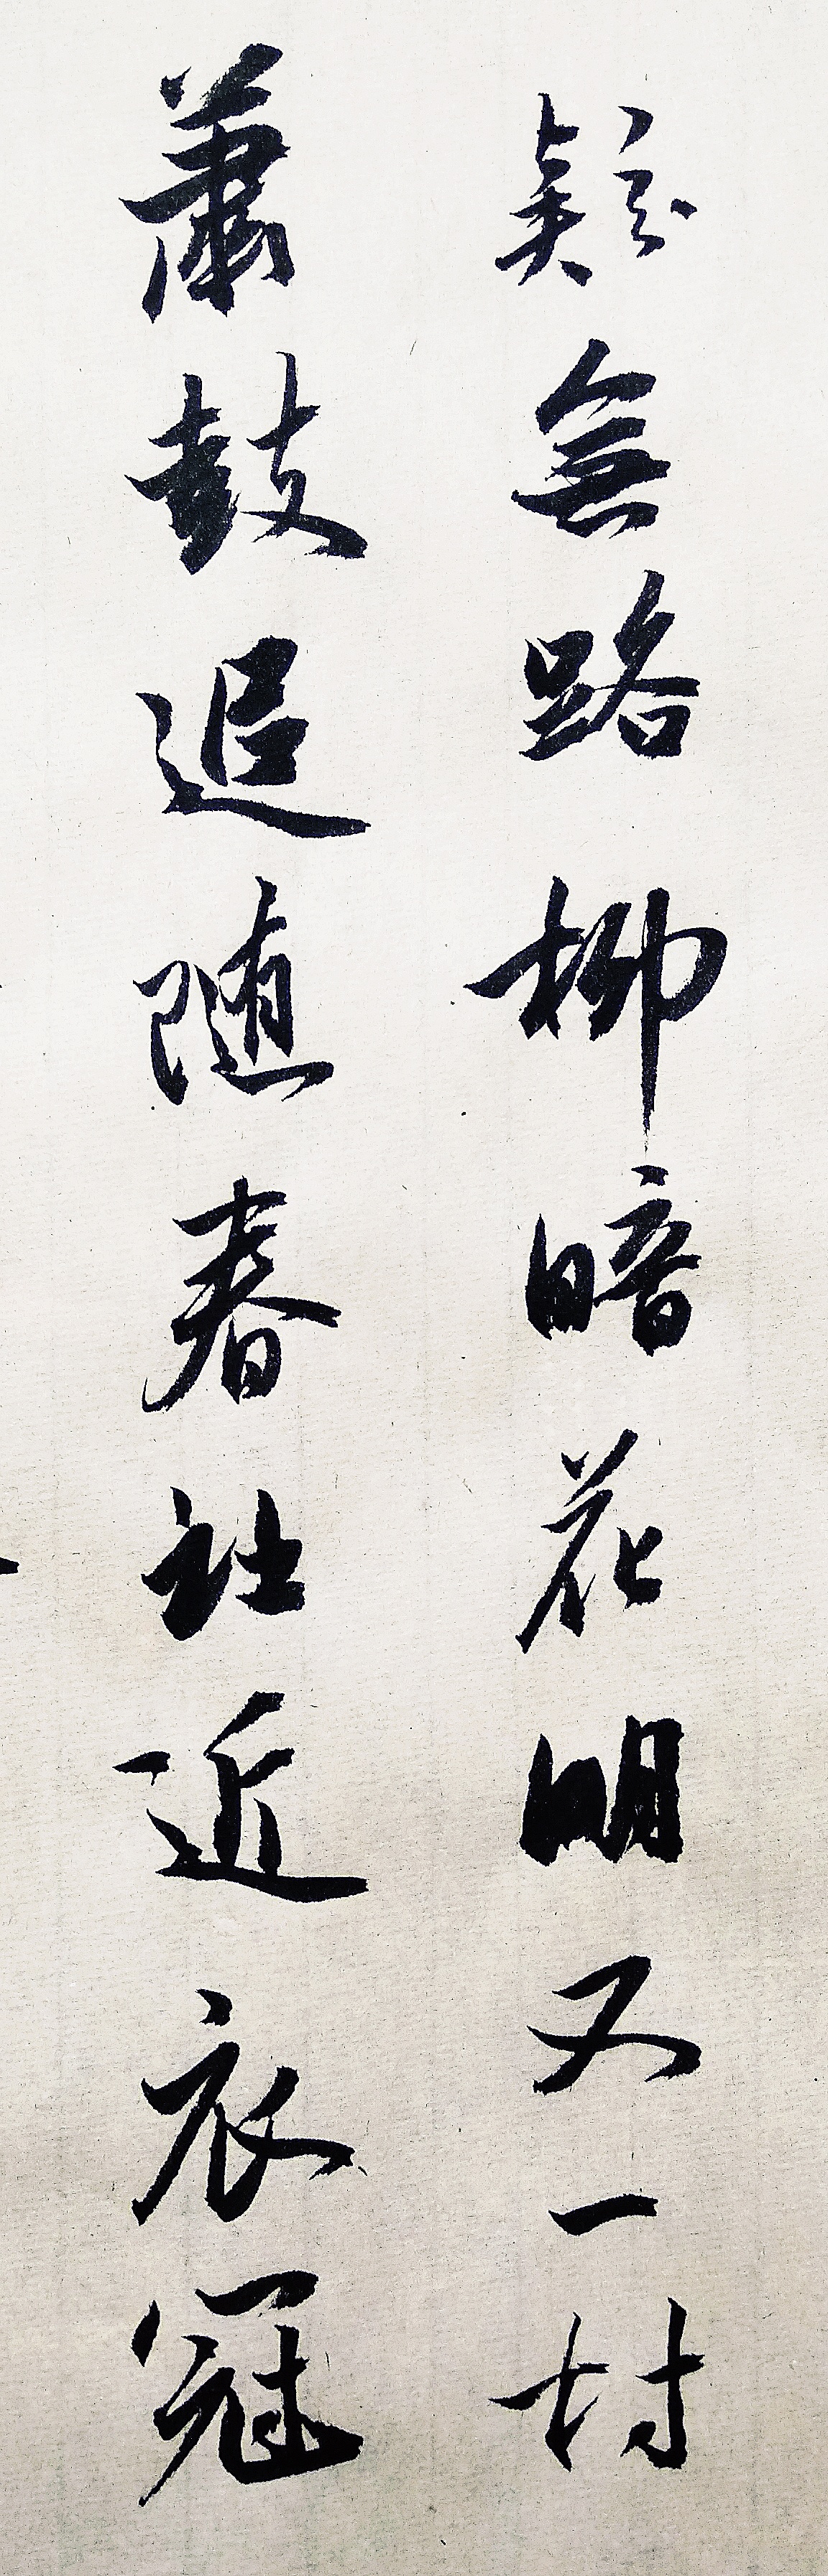 疑無路柳暗花明又一村
蕭鼓追随春社近衣冠